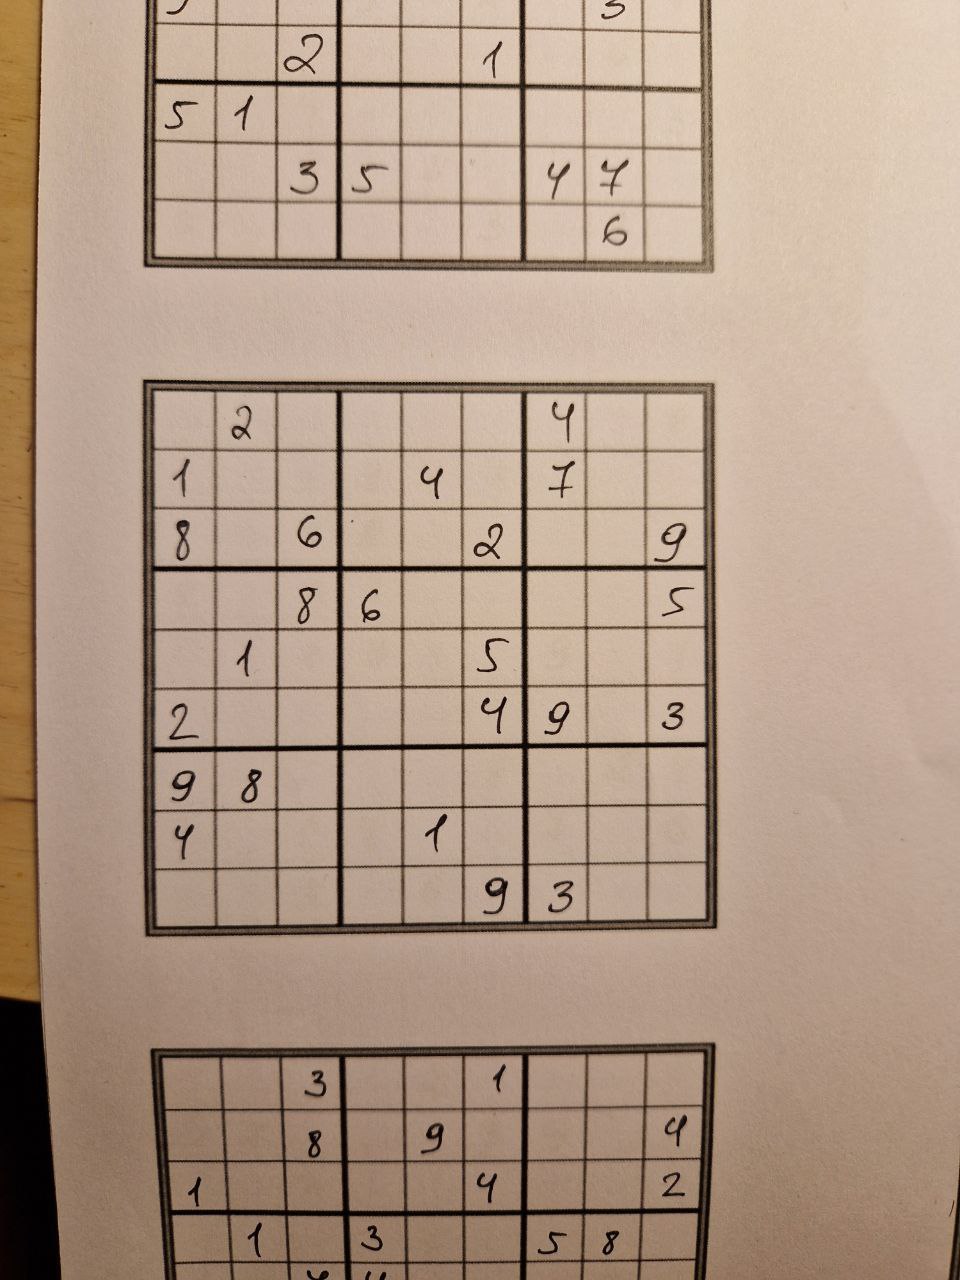 3
2 1
5 1
3 5 4 7
6
2 4
1 4 7
8 6 2 9
8 6 5
1 5
2 4 9 3
9 8
4 1
9 3
3 1
8 9 4
1 4 2
1 3 5 8